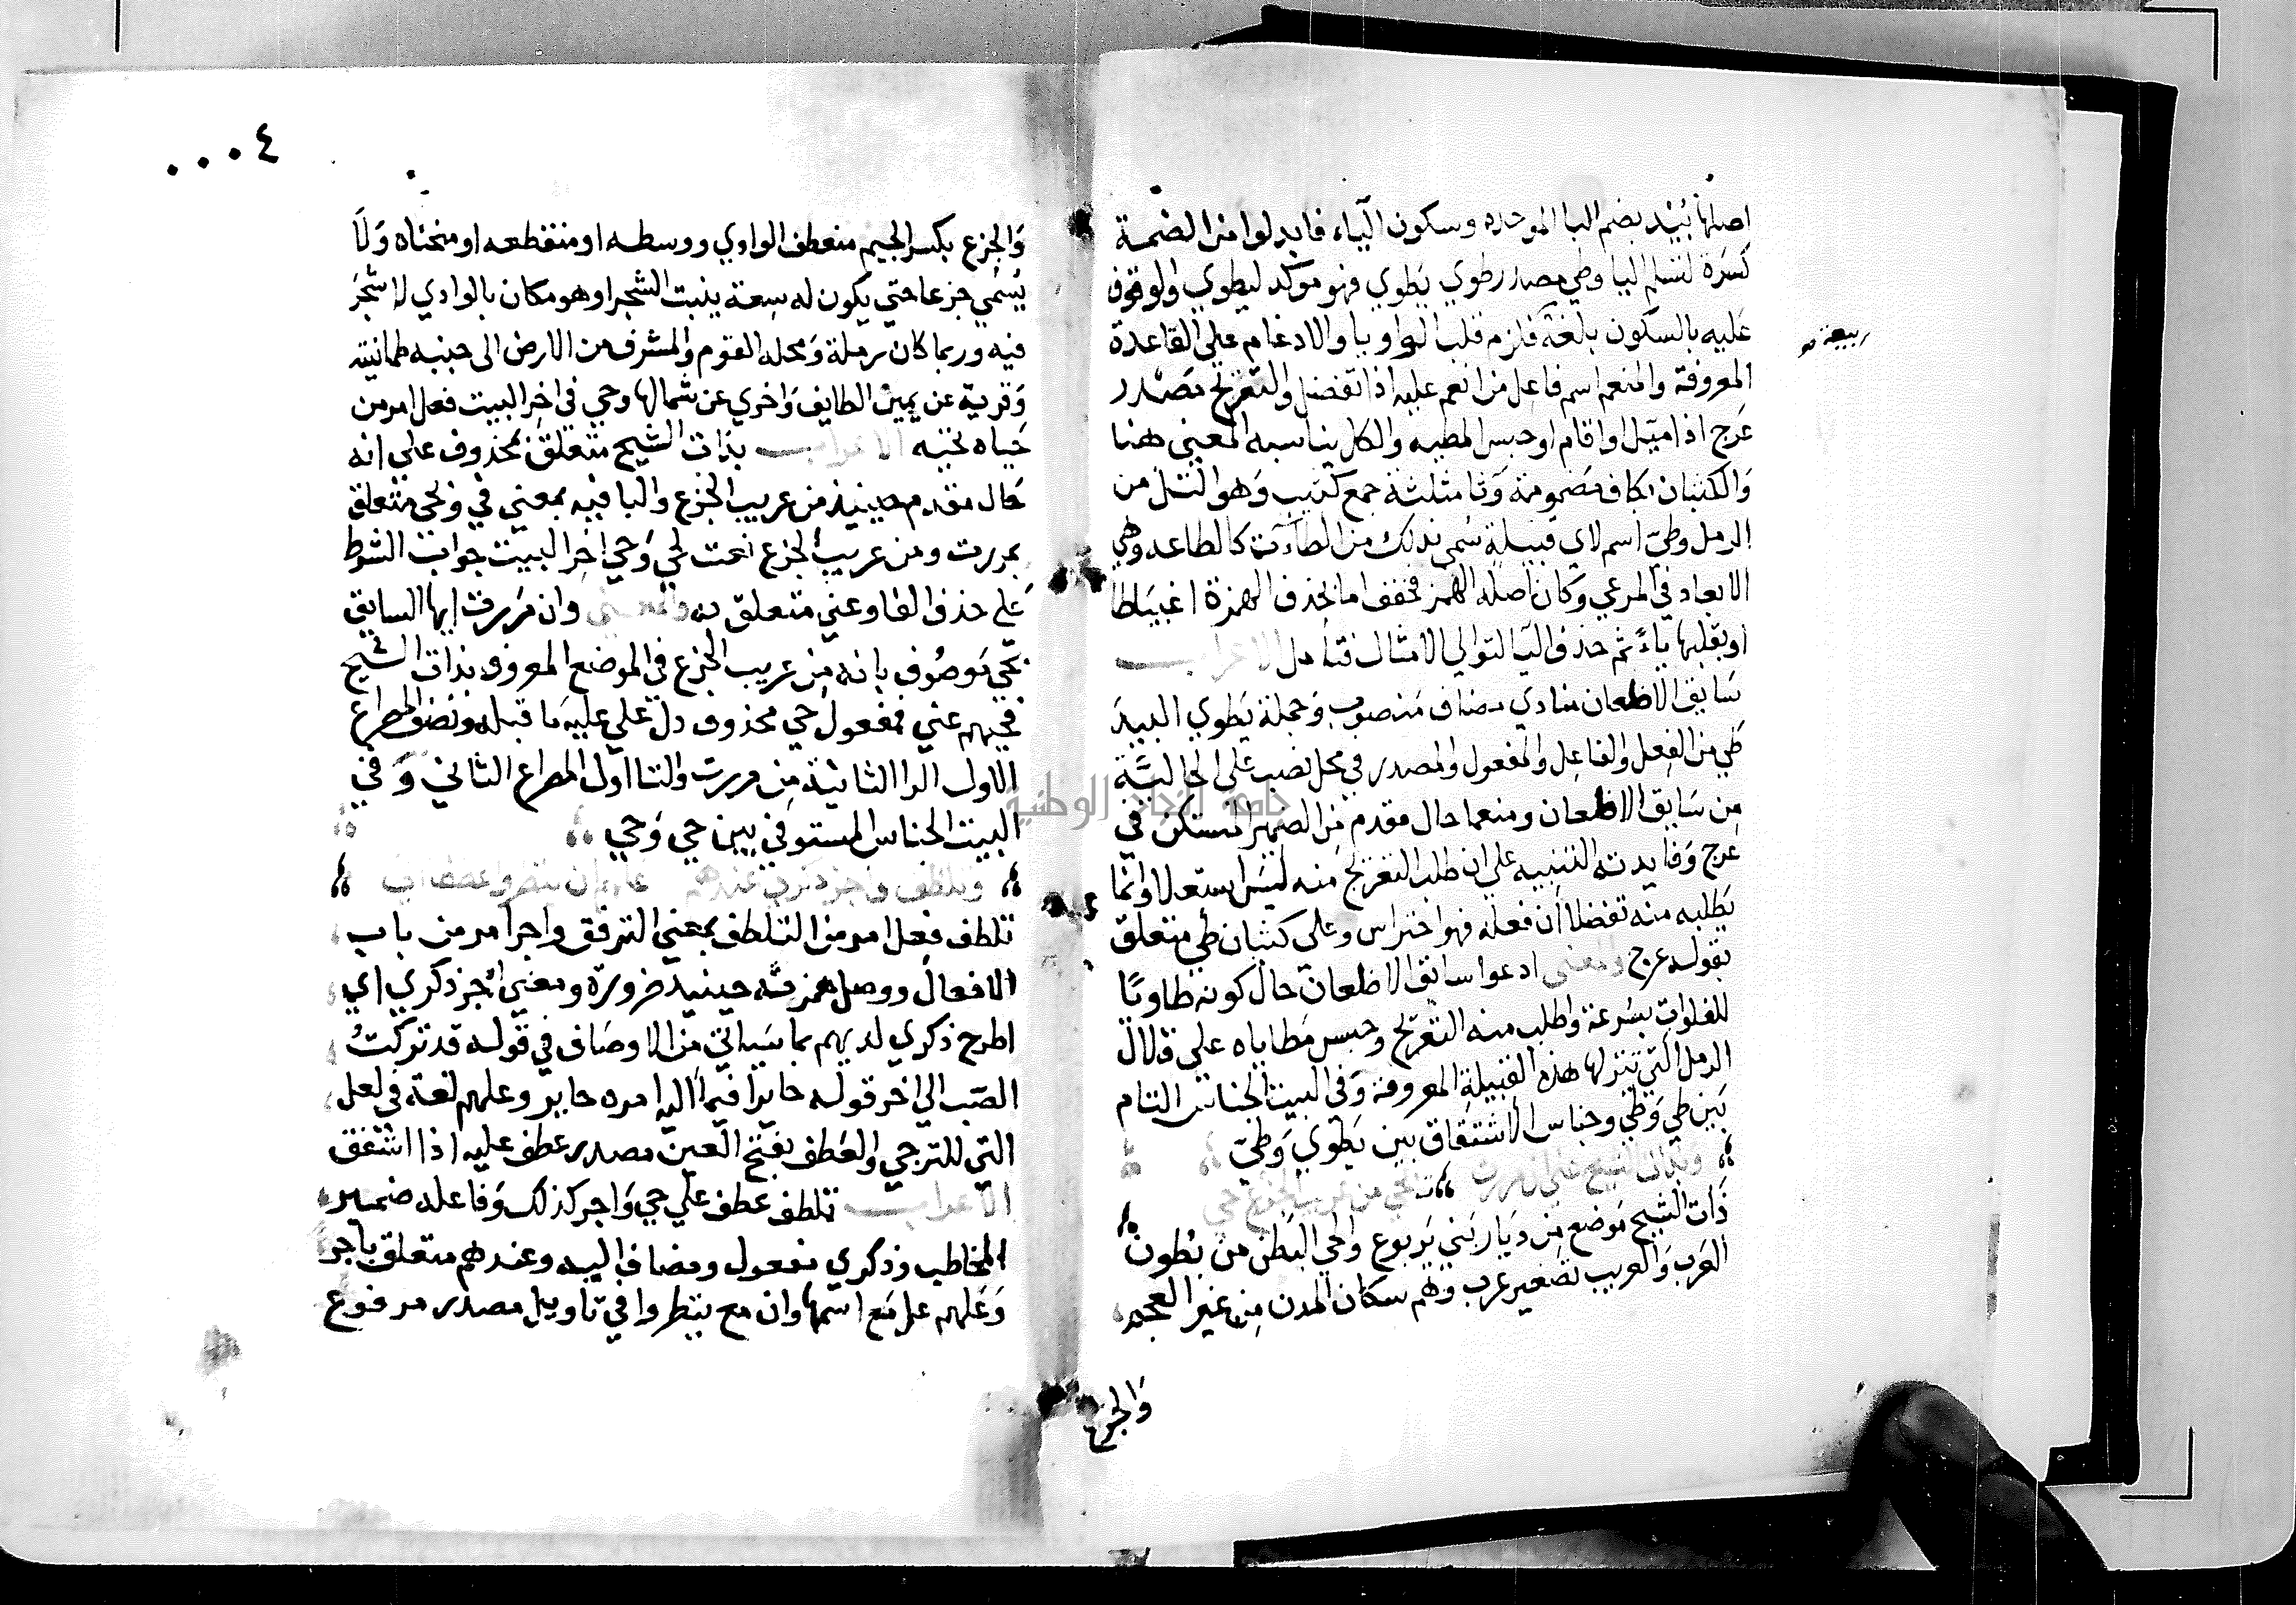 اصلها بُيْد بضم البا الموحده وسكون الياء فابدلوا من الضمة
كسرة لتسلم اليا وطي مصدر طوي يطوي فهو موكد ليطوي والوقوف
عليه بالسكون بلغة فلزم قلب الواو يا والادغام علي القاعدة
ربيعة
المعروفة والمنعم اسم فاعل من انعم عليه اذا تفضل والتعريج مصدر
عرج اذا ميّل او اقام او حبس المطيه والكل يناسبه المعني هنا
والكثبان بكاف مضمومة وثا مثلثة جمع كثيب وهو التل من
الرمل وطيّ اسم لابي قبيلة سُمي بذلك من الطاءة كالطاعه وهي
الابعاد في المرعي وكان اصله الهمز فخفف اما بحذف الهمزة اعتباطا
او بقلبها ياءً ثم حذف اليا لتوالي الامثال فتامل الاعراب
سايق الاظعان منادي مضاف منصوب وجملة يطوي البيد
طي من الفعل والفاعل والمفعول والمصدر في محل نصب علي الحالية
من سايق الاظعان ومنعما حال مقدم من الضمير المستكن في
عرج وفايدته التنبيه علي ان طلب التعريج منه ليس استعلا وانما
يطلبه منه تفضلا ان فعله فهو احتراس وعلي كثبان طي متعلق
بقوله عرج والمعني ادعوا سايق الاظعان حال كونه طاويًا
للفلوات بسرعة واطلب منه التعريج وحبس مطاياه علي تلال
الرمل التي تنزلها هذه القبيلة المعروفة وفي البيت الجناس التام
بين طي وطي وجناس الاشتقاق بين يطوي وطيّ
وبذات الشيح عني ان مررت بحي من عريب الجزع حي
ذات الشيح موضع من ديار بني يربوع والحي البطن من بطون
العرب والعريب تصغير عرب وهم سكان المدن من غير العجم
والجزع
٠٠٠٤
والجزع بكسر الجيم منعطف الوادي ووسطه او منقطعه او منحناه ولا
يُسمي جزعا حتي يكون له سعة ينبت الشجر او هو مكان بالوادي لا شجر
فيه وربما كان رملة ومحله القوم والمشرف من الارض الى جنبه طمانينة
وقرية عن يمين الطايف واخري عن شمالها وحي في اخر البيت فعل امر من
حياه تحية الاعراب بذات الشيح متعلق بمحذوف علي انه
حال مقدم حينيذ من عريب الجزع والبا فيه بمعني في وبحي متعلق
بمررت ومن عريب الجزع نعت لحي وحي اخر البيت جواب الشرط
علي حذف الفا وعني متعلق به والمعني وان مررت ايها السايق
بحي موصوف بانه من عريب الجزع في الموضع المعروف بذات الشيح
فحيهم عني فمفعول حي محذوف دل علي عليه ما قبله ونصف المصراع
الاول الرا الثانية من مررت والتا اول المصراع الثاني وفي
البيت الجناس المستوفي بين حي وحي
وتلطف واجر ذكري عندهم علهم ان ينظروا عطفا الي
تلطف فعل امر من التلطف بمعني الترفق واجر امر من باب
الافعال ووصل همزته حينيذ ضرورة ومعني اجر ذكري اي
اطرح ذكري لديهم بما سياتي من الاوصاف في قوله قد تركتُ
الصّب الي اخر قوله حايرا فيما اليه امره حاير وعلهم لغة في لعل
التي للترجي والعَطف بفتح العين مصدر عطف عليه اذا اشفق
الاعراب تلطف عطف علي حي واجر كذلك وفاعله ضمير
المخاطب وذكري مفعول ومضاف اليه وعندهم متعلق باجر
وعلهم عل مع اسمها وان مع ينظروا في تاويل مصدر مرفوع
جامعة النجاح الوطنية